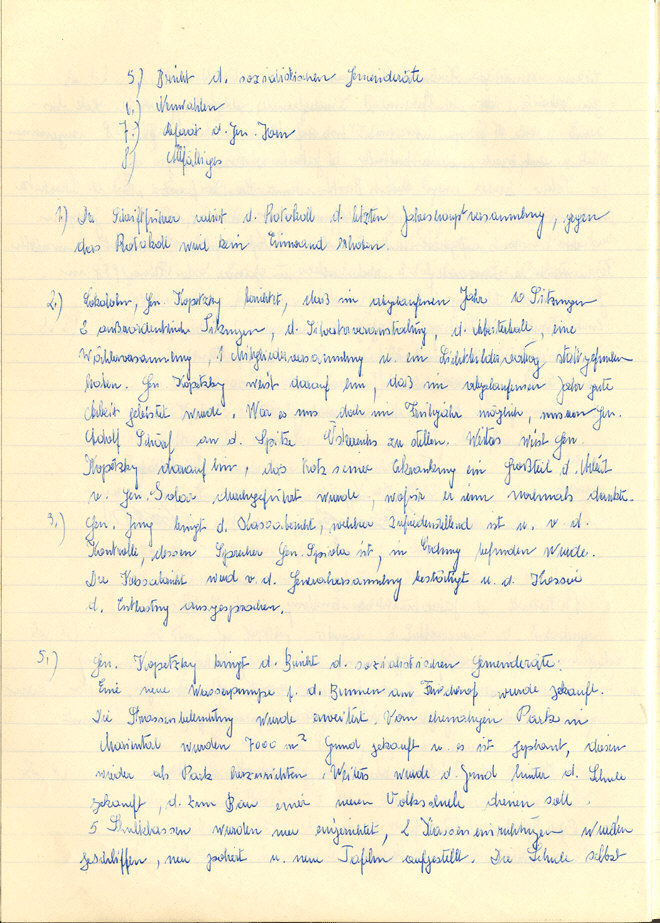 5.) Bericht d. sozialistischen Gemeinderäte
6.) Neuwahlen
7.) Referat d. Gen. Horn
8.) Allfälliges
1.) Der Schriftführer verliest d. Protokoll d. letzten Jahreshauptversammlung, gegen
das Protokoll wird kein Einwand erhoben.
2.) Lokalobm. Gen. Kopetzky berichtet, daß im abgelaufenen Jahr 10 Sitzungen
2 außerordentliche Sitzungen, d. Silvesterveranstaltung, d. Maifeier, eine
Wählerversammlung, 1 Mitgliederversammlung u. ein Lichtbildervortrag stattgefunden
haben. Gen. Kopetzky weist darauf hin, daß im abgelaufenen Jahr gute
Arbeit geleistet wurde. War es uns doch im Frühjahr möglich, unseren Gen.
Adolf Schärf an d. Spitze Österreichs zu stellen. Weiters weist Gen.
Kopetzky darauf hin, das trotz seiner Erkrankung ein Großteil d. Arbeit
v. Gen. durchgeführt wurde, wofür er ihm nochmals dankte.
3.) Gen. Jung bringt d. Kassabericht, welcher zufriedenstellend ist u. v. d.
Kontrolle, dessen Sprecher Gen. ist, in Ordnung befunden wurde.
Der Kassabericht wird v. d. Generalversammlung bestätigt u. d. Kassier
d. Entlastung ausgesprochen.
5.) Gen. Kopetzky bringt d. Bericht d. sozialistischen Gemeinderäte:
Eine neue Wasserpumpe f. d. Brunnen am wurde gekauft.
Die Strassenbeleuchtung wurde erweitert. Vom ehemaligen Park in
Mariental wurden 7000 m² Grund gekauft u. es ist geplant, diesen
wieder als Park herzurichten. Weiters wurde d. Grund hinter d. Schule
gekauft, d. zum Bau einer neuen Volksschule dienen soll.
5 Schulklassen wurden neu eingerichtet, 2 Klasseneinrichtungen wurden
geschliffen, neu u. neue Tafeln aufgestellt. Die Schule selbst